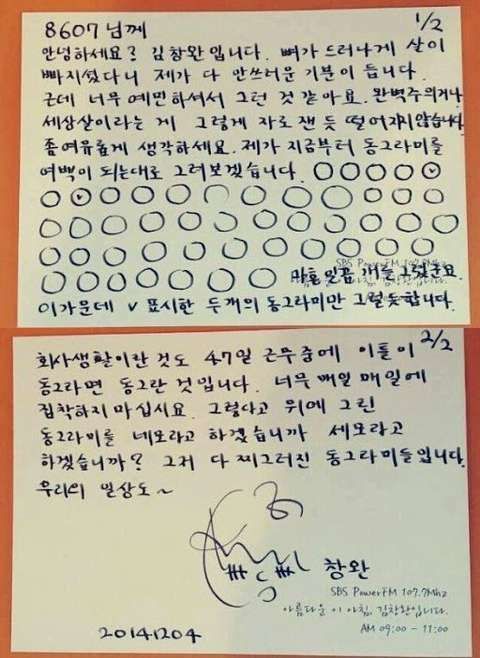 8607님께
1/2
안녕하세요? 김창완입니다. 뼈가 드러나게 살이
빠지셨다니 제가 다 안쓰러운 기분이 듭니다.
근데 너무 예민하셔서 그런 것 같아요. 완벽주의거나
세상살이라는 게 그렇게 자로 잰 듯 떨어지지않습니다
좀 여유롭게 생각하세요. 제가 지금부터 동그라미를
여백이 되는대로 그려보겠습니다.
SBS PowerFM 107.7Mhz
마흔 일곱 개를 그렸군요.
이 가운데 v 표시한 두 개의 동그라미만 그럴듯합니다.
회사생활이란 것도 47일 근무중에 이틀이
2/2
동그라면 동그란 것입니다. 너무 매일 매일에
집착하지 마십시요. 그렇다고 위에 그린
동그라미를 네모라고 하겠습니까 세모라고
하겠습니까? 그저 다 찌그러진 동그라미들입니다.
우리의 일상도~
창완
SBS PowerFM 107.7Mhz
아름다운 이 아침, 김창완입니다.
AM 09:00 - 11:00
20141204